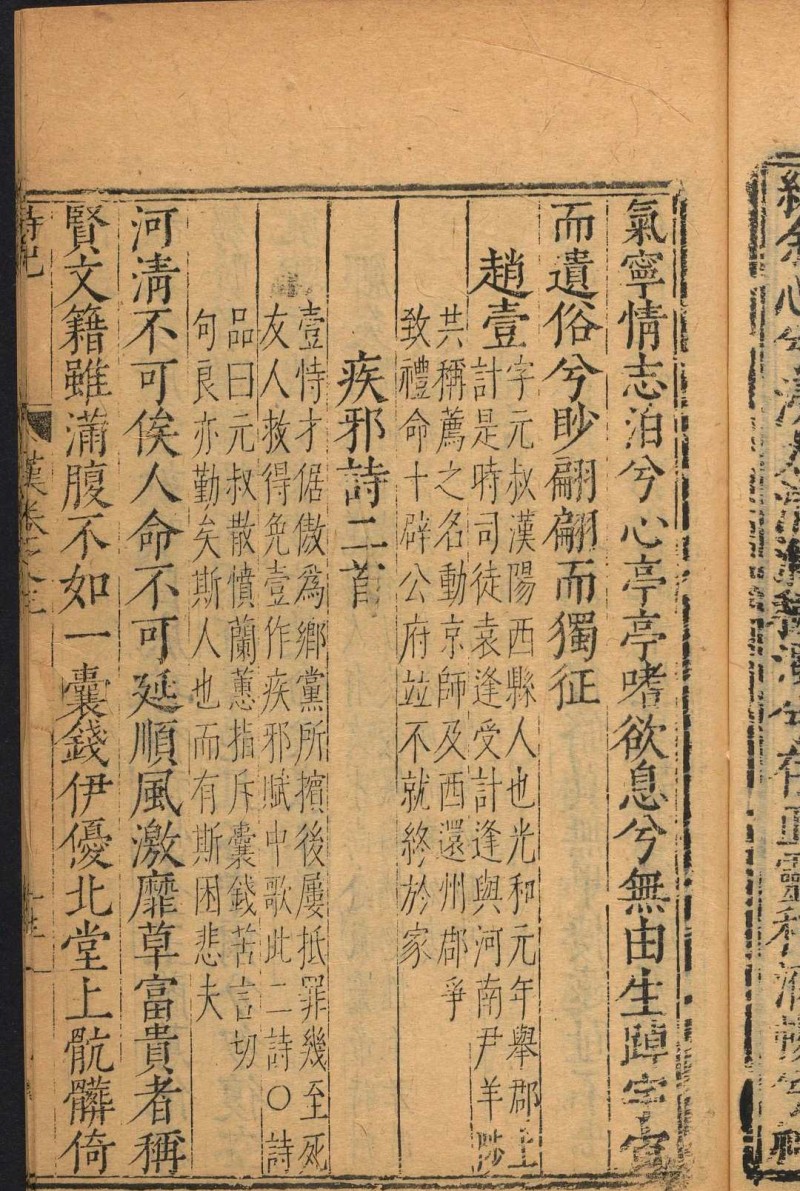 氣寧情志泊兮心亭亭嗜欲息兮無由生踔宇宙
而遺俗兮眇翩翩而獨征
趙壹
字元叔漢陽西縣人也光和元年舉郡上
計是時司徒袁逢受計逢與河南尹羊陟
共稱薦之名動京師及西還州郡爭
致禮命十辟公府竝不就終於家
疾邪詩二首
壹恃才倨傲爲鄉黨所擯後屢抵罪幾至死
友人救得免壹作疾邪賦中歌此二詩○詩
品曰元叔散憤蘭蕙指斥囊錢苦言切
句良亦勤矣斯人也而有斯困悲夫
河清不可俟人命不可延順風激靡草富貴者稱
賢文籍雖滿腹不如一囊錢伊優北堂上骯髒倚
詩紀
漢卷之